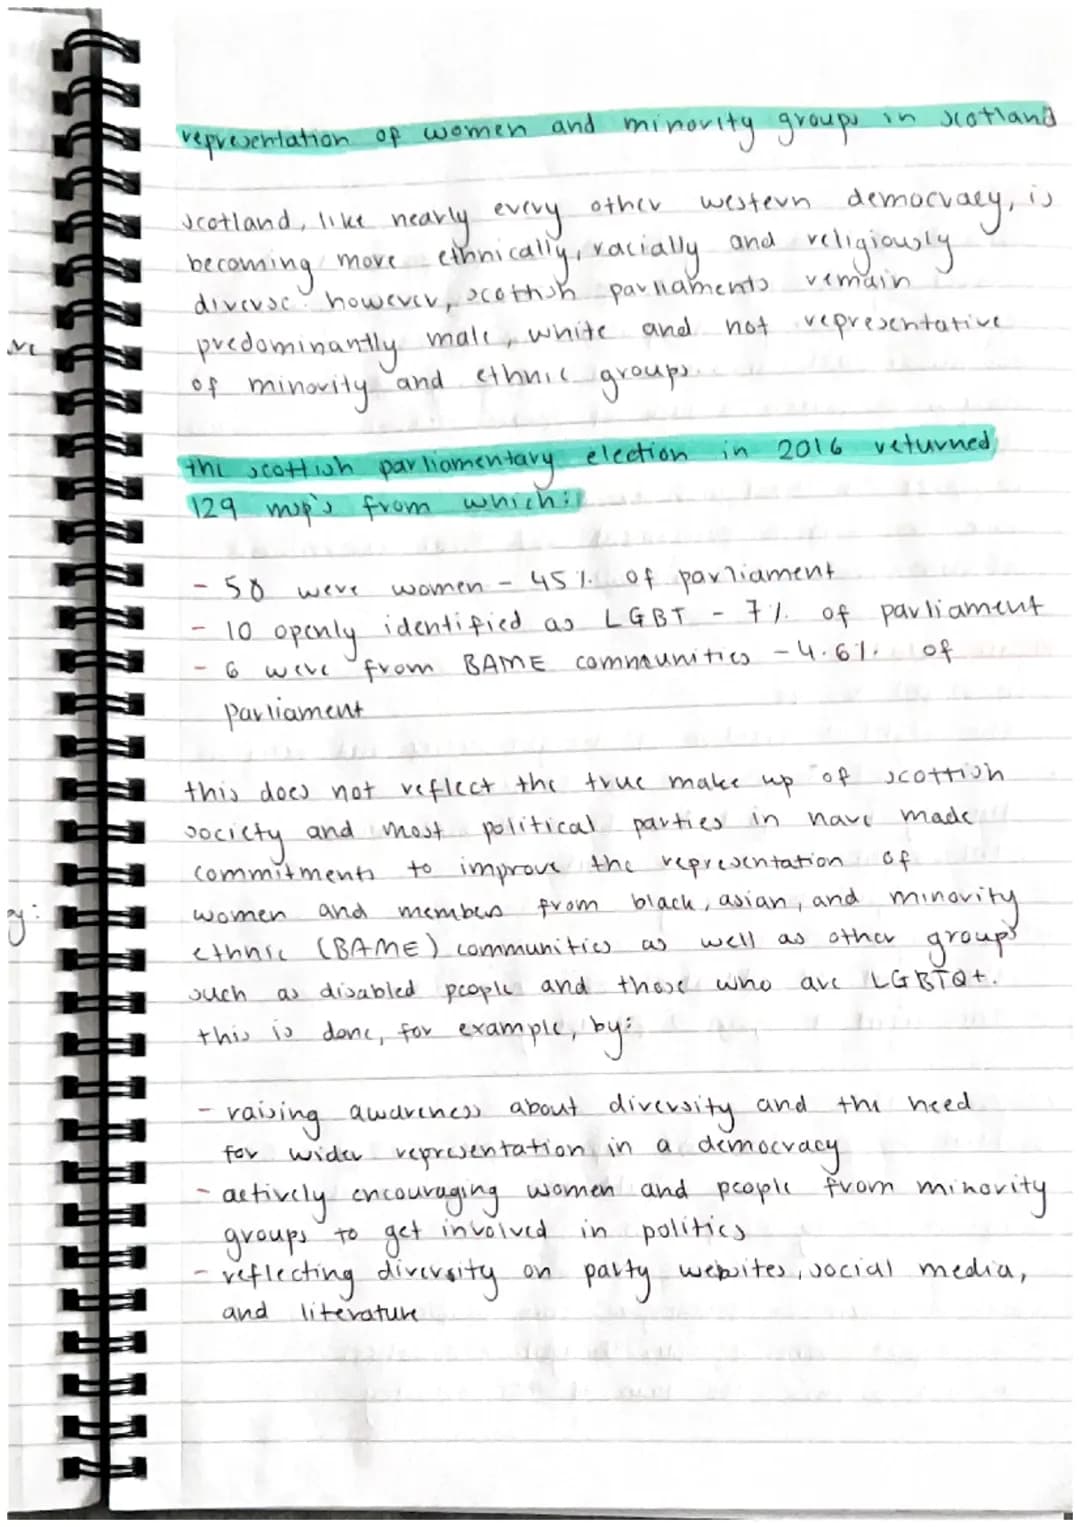 representation of women and minority groups in scotland
scotland, like nearly every other western democracy, is
becoming more ethnically, racially and religiously
diverse. however, scottish parliaments remain
ve
predominantly male, white and not representative
of minority and ethnic groups.
the scottish parliamentary election in 2016 returned
129 msp's from which:
- 58 were women - 45% of parliament
- 10 openly identified as LGBT - 7% of parliament
- 6 were from BAME communities - 4.6% of
parliament
this does not reflect the true make up of scottish
society and most political parties in have made
commitments to improve the representation of
women and members from black, asian, and minority
y:
ethnic (BAME) communities as well as other groups
such as disabled people and those who are LGBTQ+.
this is done, for example, by:
- raising awareness about diversity and the need
for wider representation in a democracy
- actively encouraging women and people from minority
groups to get involved in politics
- reflecting diversity on party websites, social media,
and literature